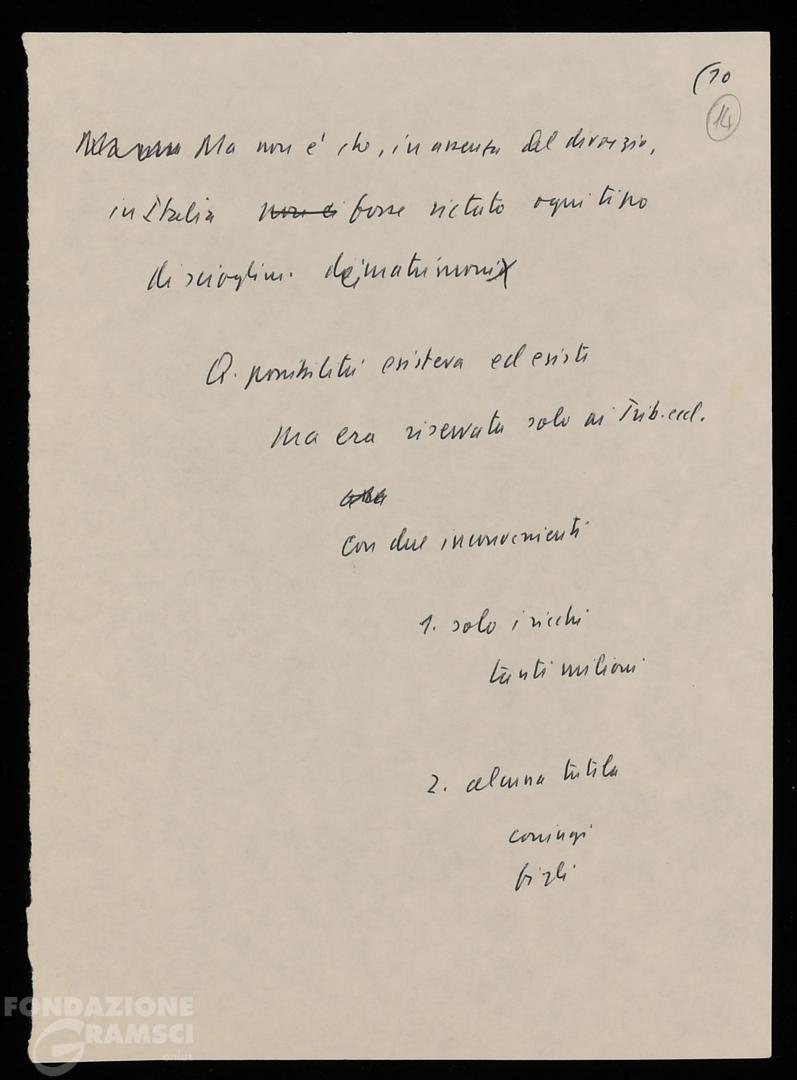 (10
14
Ma non è che, in assenza del divorzio,
in Italia non si fosse vietato ogni tipo
di scioglim. dei matrimoni
Q. possibilità esisteva ed esiste
Ma era riservata solo ai Trib. eccl.
con due inconvenienti
1. solo i ricchi
tanti milioni
2. alcuna tutela
coniugi
figli
FONDAZIONE
GRAMSCI
onlus